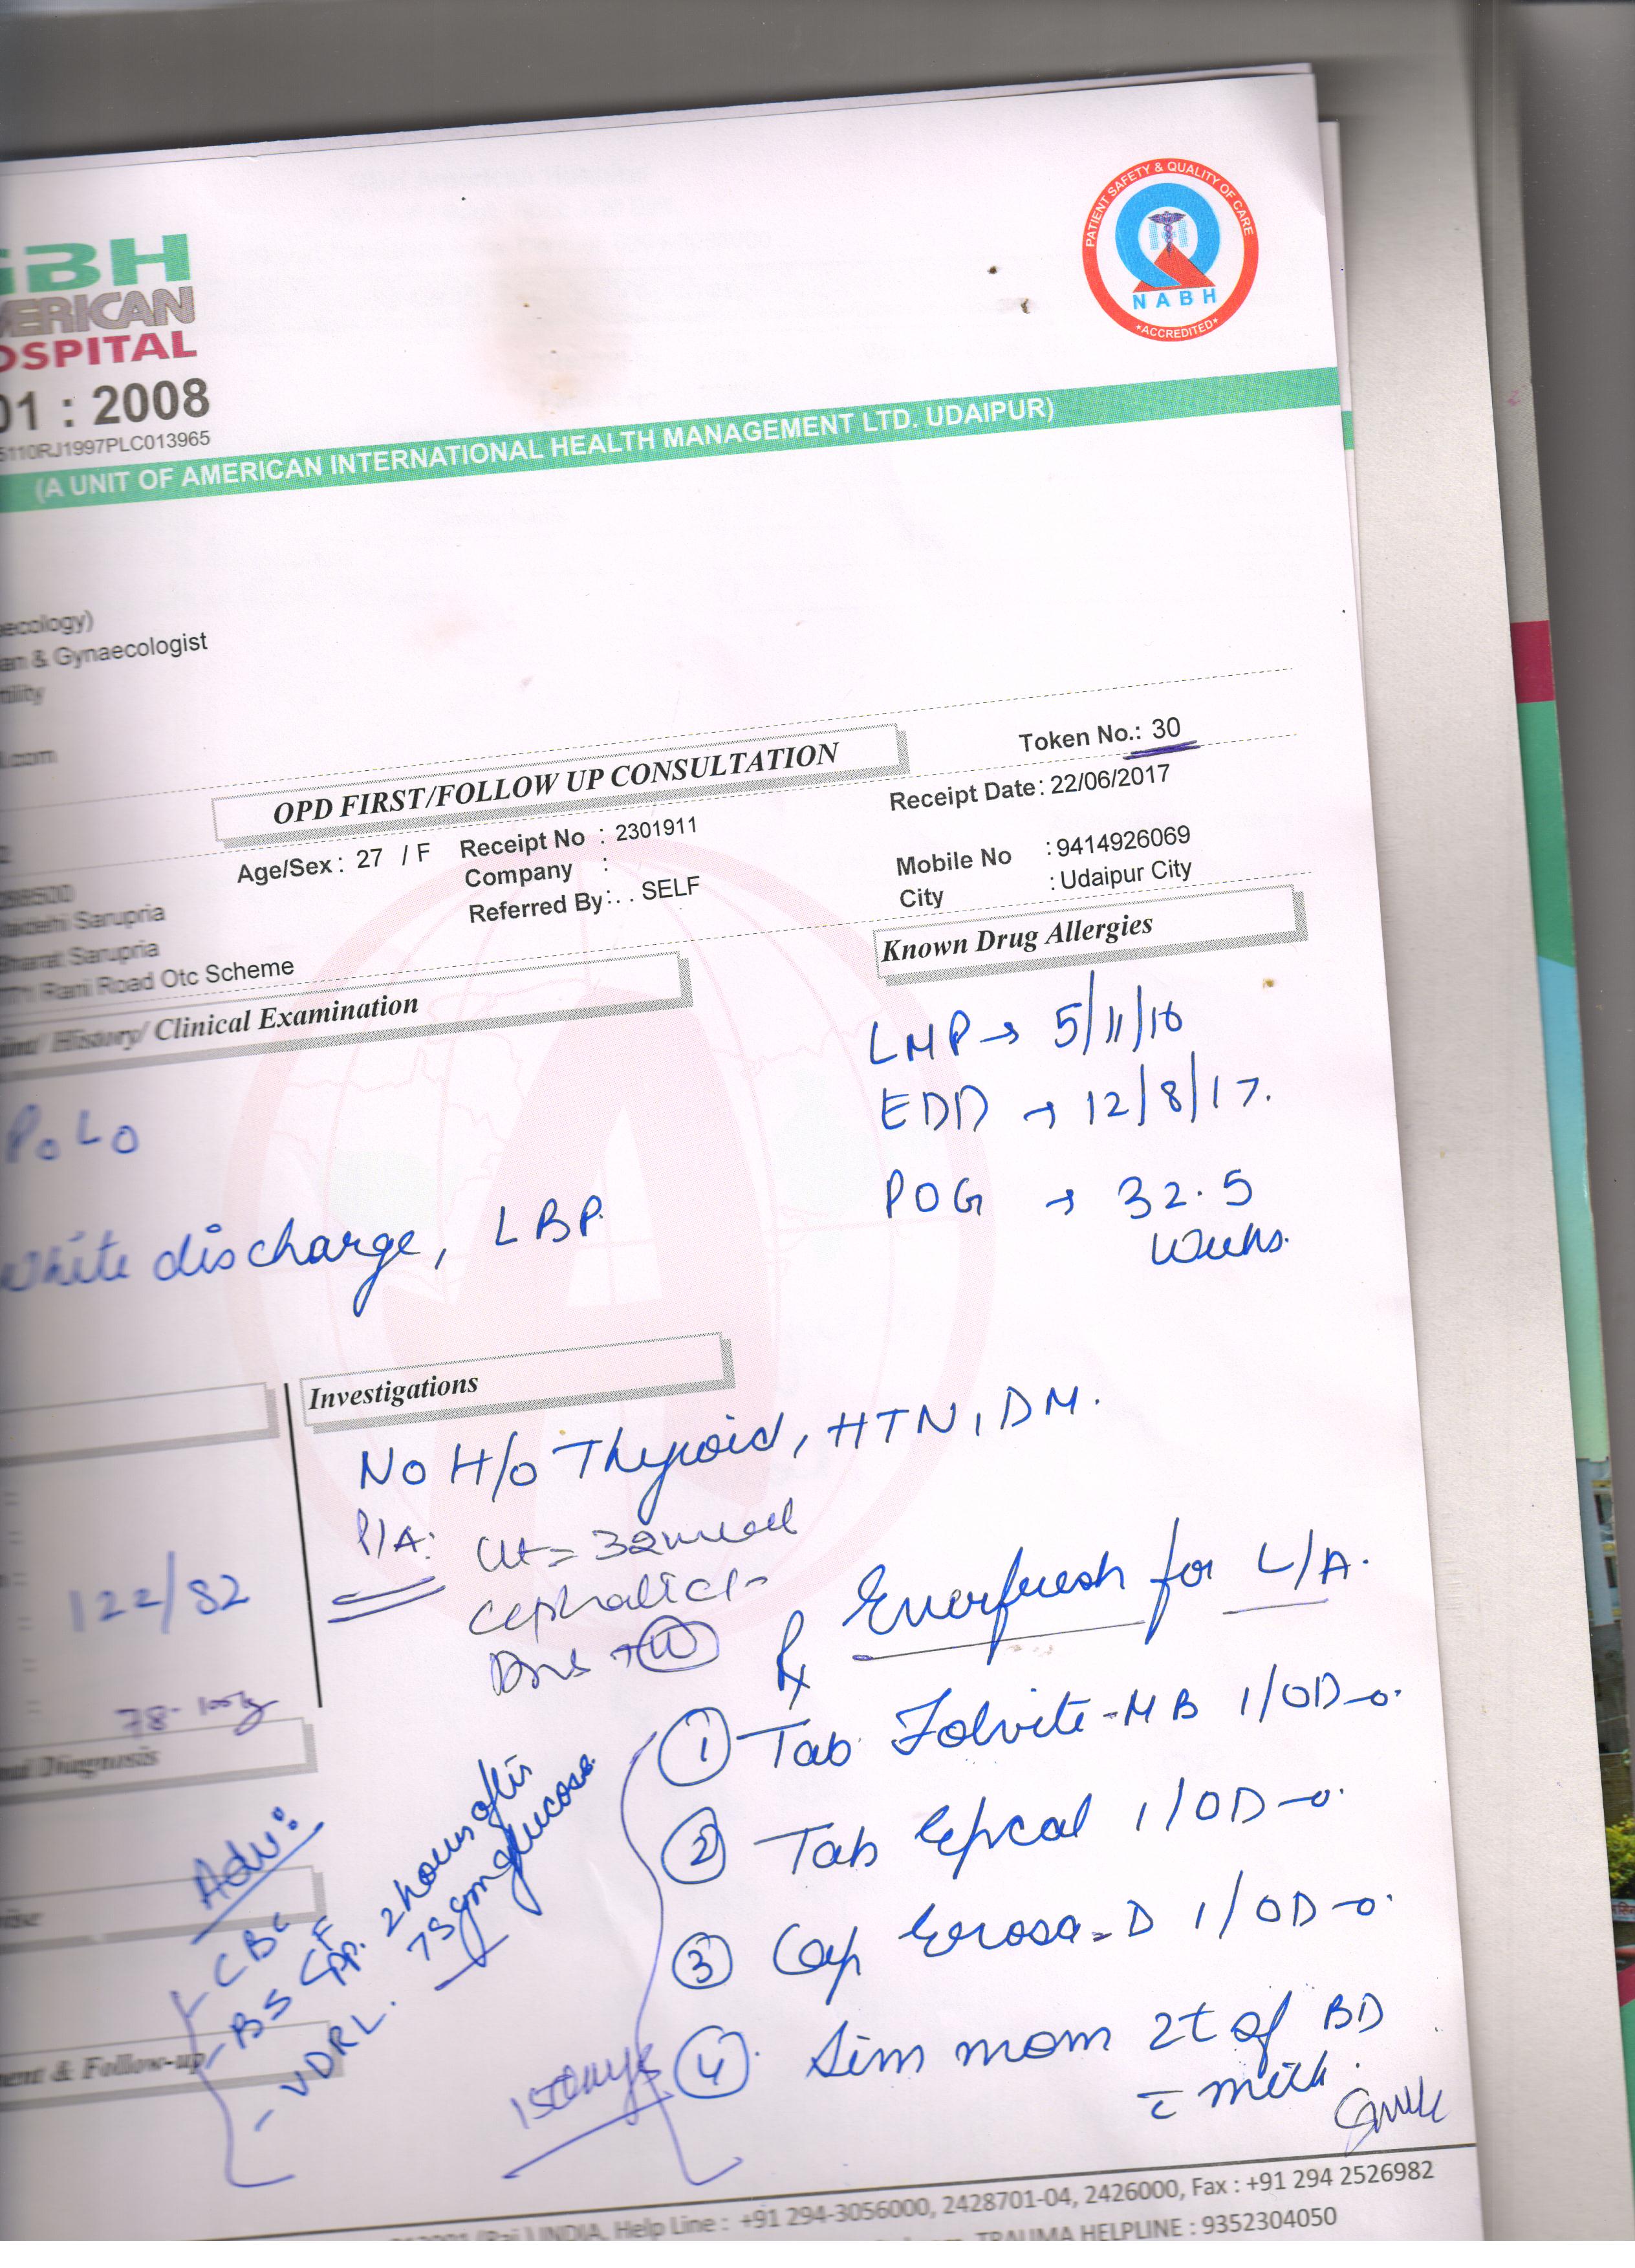 GBH
AMERICAN
HOSPITAL
01 : 2008
5110RJ1997PLC013965
PATIENT SAFETY & QUALITY OF CARE
NABH
*ACCREDITED*
(A UNIT OF AMERICAN INTERNATIONAL HEALTH MANAGEMENT LTD. UDAIPUR)
aecology)
an & Gynaecologist
tility
l.com
OPD FIRST/FOLLOW UP CONSULTATION
Token No.: 30
Age/Sex : 27 / F Receipt No : 2301911 Receipt Date : 22/06/2017
Company : Mobile No : 9414926069
Referred By : . . SELF City : Udaipur City
Sarupria
Bharat Sarupria
Rani Road Otc Scheme
History/ Clinical Examination
Known Drug Allergies
LMP → 5/11/16
EDD → 12/8/17.
P0L0
POG → 32.5
weeks.
White discharge, LBP.
Investigations
No H/o Thyroid, HTN, DM.
P/A: Ut = 32 week
Cephalic
122/82
78.
Rx Enerfresh for L/A.
① Tab Folvite-MB 1/OD
② Tab 1/OD
③ Cap -D 1/OD
④ Sim mom 2t of BD
c̄ milk.
15 days
Diagnosis
Adv:
CBC
BS F
PP. 2 hours after
75 gm glucose.
- VDRL.
& Follow-up
INDIA, Help Line : +91 294-3056000, 2428701-04, 2426000, Fax : +91 294 2526982
TRAUMA HELPLINE : 9352304050